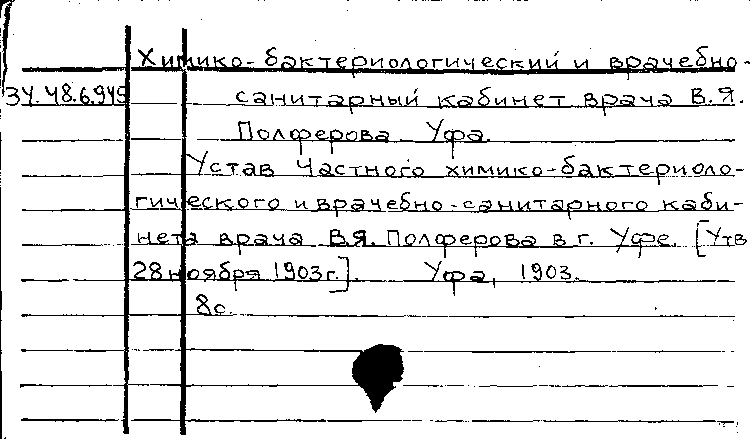 Химико-бактериологический и врачебно-
34.48.6.949 санитарный кабинет врача В.Я.
Полферова. Уфа.
Устав Частного химико-бактериоло-
гического и врачебно-санитарного каби-
нета врача В.Я. Полферова в г. Уфе. [Утв
28 ноября 1903 г.]. Уфа, 1903.
8с.